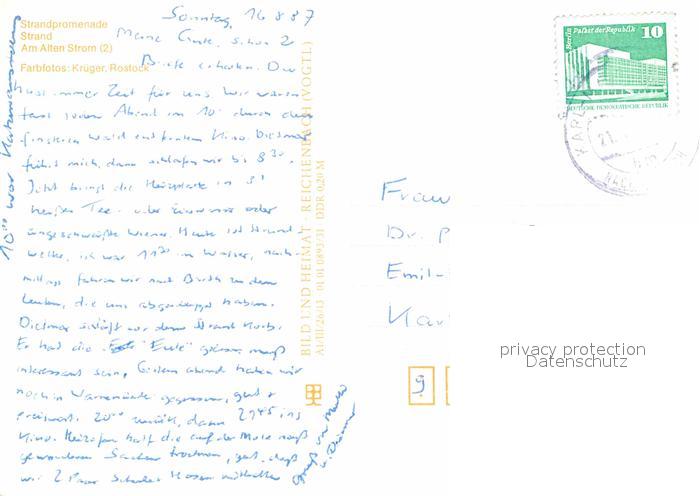 Sonntag, 16 8 87
Strandpromenade
Strand
Am Alten Strom (2)
Farbfotos: Krüger, Rostock
Meine Gute, schon 2
Briefe erhalten. Du
hast immer Zeit für uns. Wir waren
fast jeden Abend im 10' durch den
finstern Wald entfernten Kino. Dietmar
führt mich, dann schlafen wir bis 8³⁰.
Jetzt bringt die Heizplatte in 3'
heißen Tee oder
angeschweißte Wiener. Heute ist Strand-
wetter, ich war 11³⁰ im Wasser, nach-
mittags fahren wir nach Barth zu den
Leuten, die uns abgeschleppt haben.
Dietmar schläft vor dem Strand Korb.
Er hat die "Eule" gelesen, muß
interessant sein. Gestern abend haben wir
noch in Warnemünde gegessen, gut +
preiswert. 20⁰⁰ zurück, dann 21⁴⁵ ins
Kino. Heizofen half die auf der Mole naß
gewordenen Sachen trocknen, gut, daß
wir 2 Paar Schuhe Hosen mithatten
Gruß von
u. Dietmar
10⁰⁰ war
BILD UND HEIMAT · REICHENBACH (VOGTL)
A1/III/26/13 01 01 0893/31 DDR 0,20 M
Berlin Palast der Republik
10
DEUTSCHE DEMOKRATISCHE REPUBLIK
Frau
Dr. P
Emil-
Karl
9
privacy protection
Datenschutz